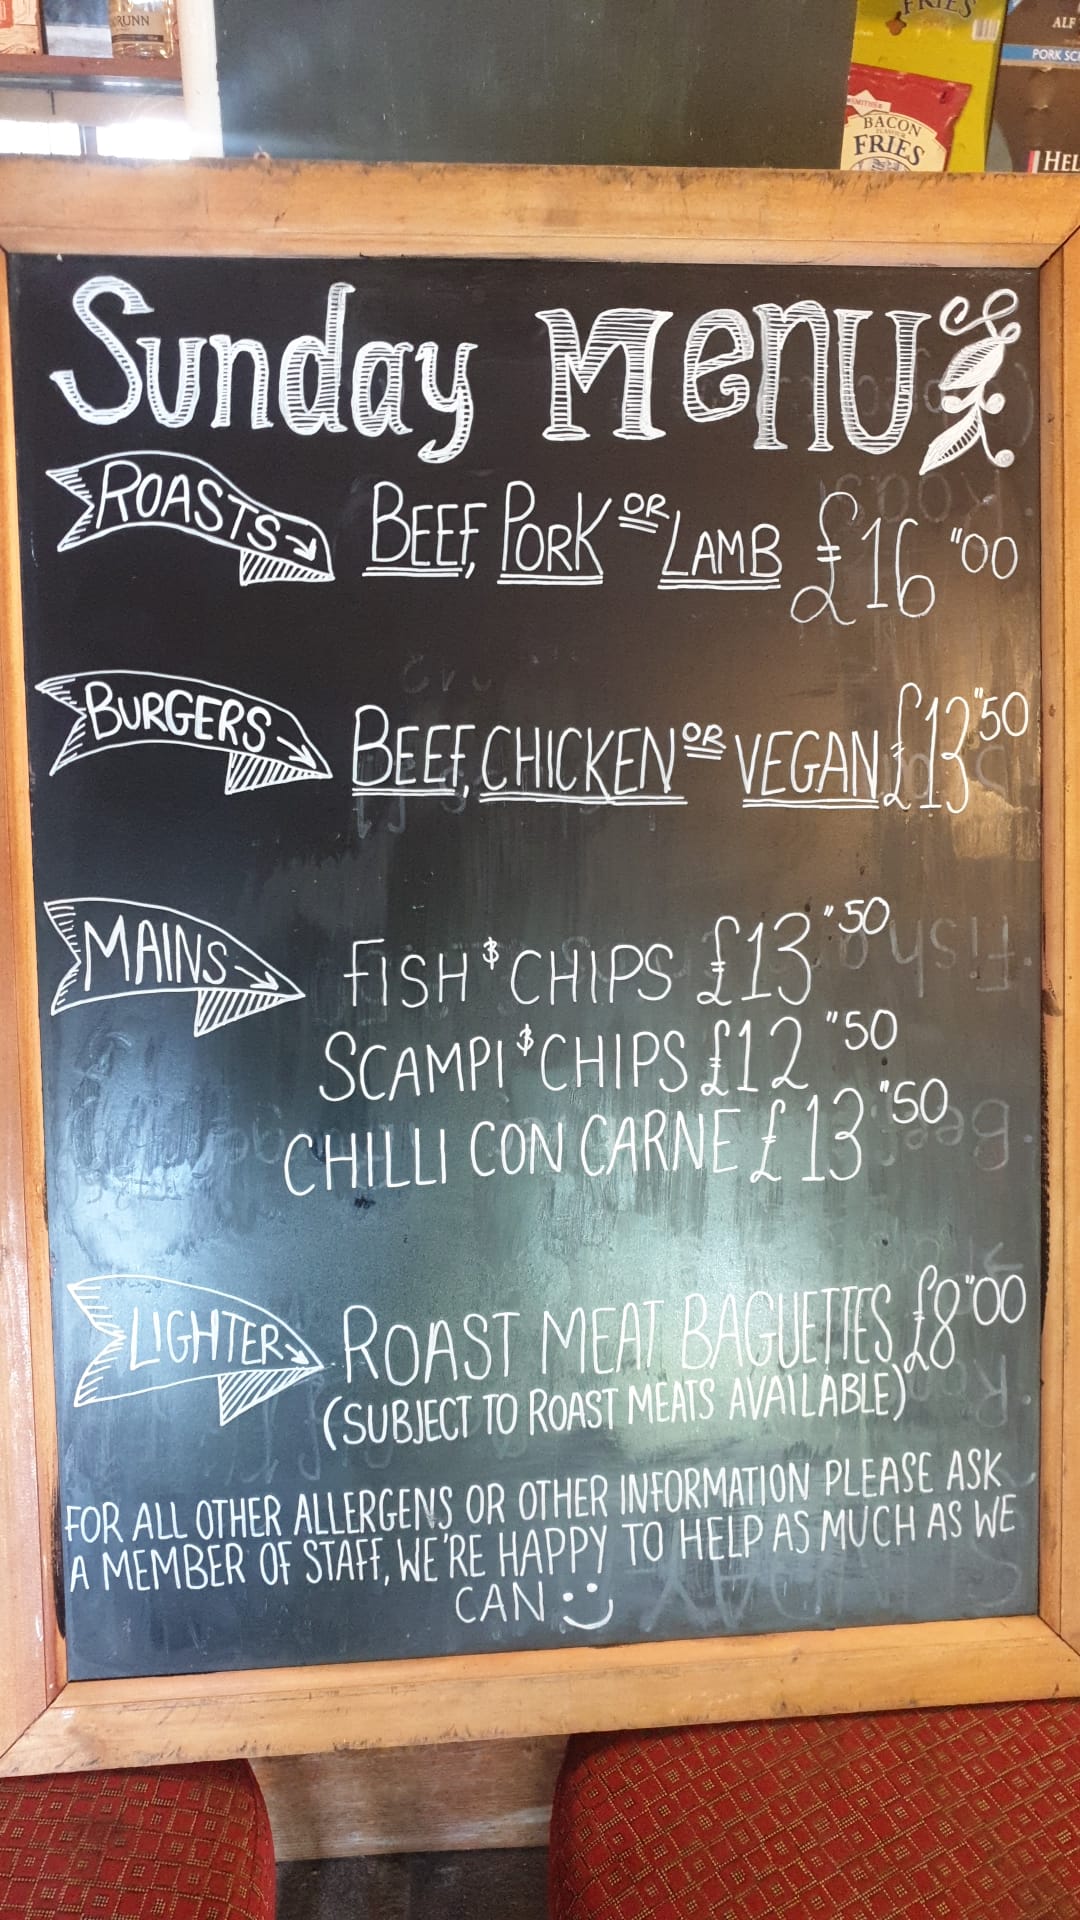 RUNN
FRIES
ALF
PORK SC
SMITHS
BACON
FLAVOUR
FRIES
HEL
Sunday MENU
ROASTS BEEF, PORK OR LAMB £16"00
BURGERS BEEF, CHICKEN OR VEGAN £13"50
MAINS FISH & CHIPS £13"50
SCAMPI & CHIPS £12"50
CHILLI CON CARNE £13"50
LIGHTER ROAST MEAT BAGUETTES £8"00
(SUBJECT TO ROAST MEATS AVAILABLE)
FOR ALL OTHER ALLERGENS OR OTHER INFORMATION PLEASE ASK
A MEMBER OF STAFF, WE'RE HAPPY TO HELP AS MUCH AS WE
CAN :)